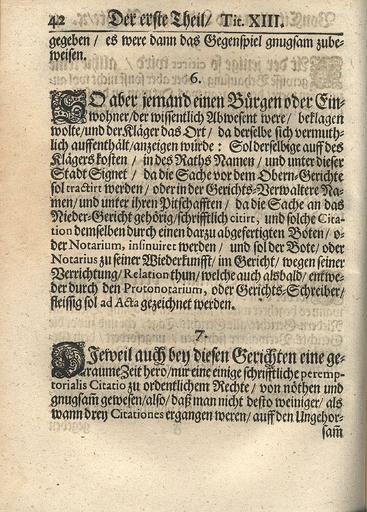 42 Der erste Theil/ Tit. XIII.
gegeben / es were dann das Gegenspiel gnugsam zube-
weisen.
6.
SO aber jemand einen Bürgen oder Ein-
wohner/der wissentlich Abwesent were/ beklagen
wolte/und der Kläger das Ort/ da derselbe sich vermuth-
lich auffenthält/anzeigen würde: Sol derselbige auff des
Klägers kosten / in des Raths Namen / und unter dieser
Stadt Signet / da die Sache vor dem Obern-Gerichte
sol tractirt werden / oder in der Gerichts-Verwaltere Na-
men/und unter ihren Pitschafften / da die Sache an das
Nieder-Gericht gehörig/schrifftlich citirt, und solche Cita-
tion demselben durch einen darzu abgefertigten Boten/ o-
der Notarium, insinuiret werden / und sol der Bote/ oder
Notarius zu seiner Wiederkunfft/ im Gericht/ wegen seiner
Verrichtung/Relation thun/welche auch alsbald/ entwe-
der durch den Protonotarium, oder Gerichts-Schreiber/
fleissig sol ad Acta gezeichnet werden.
7.
DJeweil auch bey diesen Gerichten eine ge-
raume Zeit hero/nur eine einige schrifftliche peremp-
torialis Citatio zu ordentlichem Rechte / von nöthen und
gnugsam gewesen/also/daß man nicht desto weiniger/ als
wann drey Citationes ergangen weren/auff den Ungehor-
sam